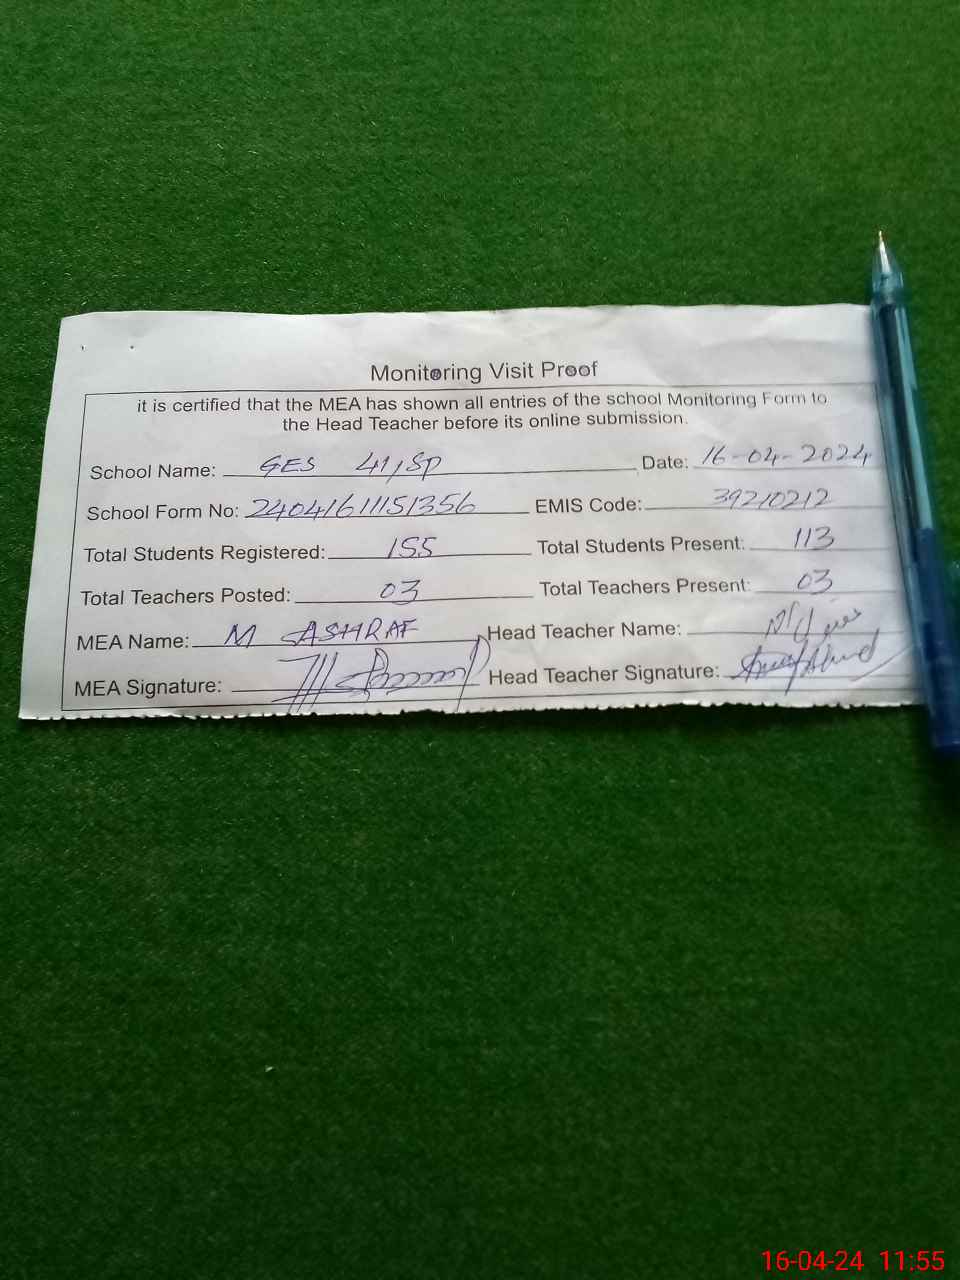 Monitoring Visit Proof
it is certified that the MEA has shown all entries of the school Monitoring Form to
the Head Teacher before its online submission.
School Name: GES 41,SP Date: 16-04-2024
School Form No: 24041611151356 EMIS Code: 39210212
Total Students Registered: 155 Total Students Present: 113
Total Teachers Posted: 03 Total Teachers Present: 03
MEA Name: M ASHRAF Head Teacher Name:
MEA Signature: Head Teacher Signature:
16-04-24 11:55